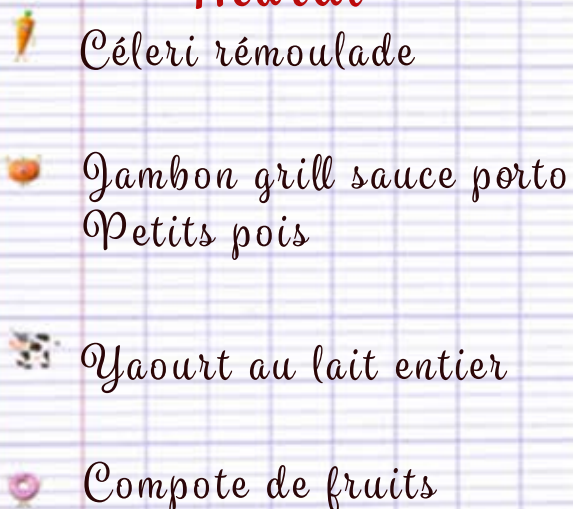 Céleri rémoulade
Jambon grill sauce porto
Petits pois
Yaourt au lait entier
Compote de fruits